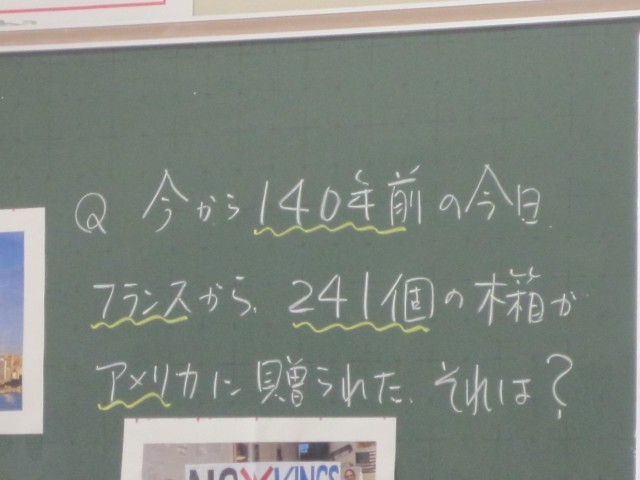 Q 今から140年前の今日
フランスから、241個の木箱が
アメリカに贈られた。それは?
NO KINGS